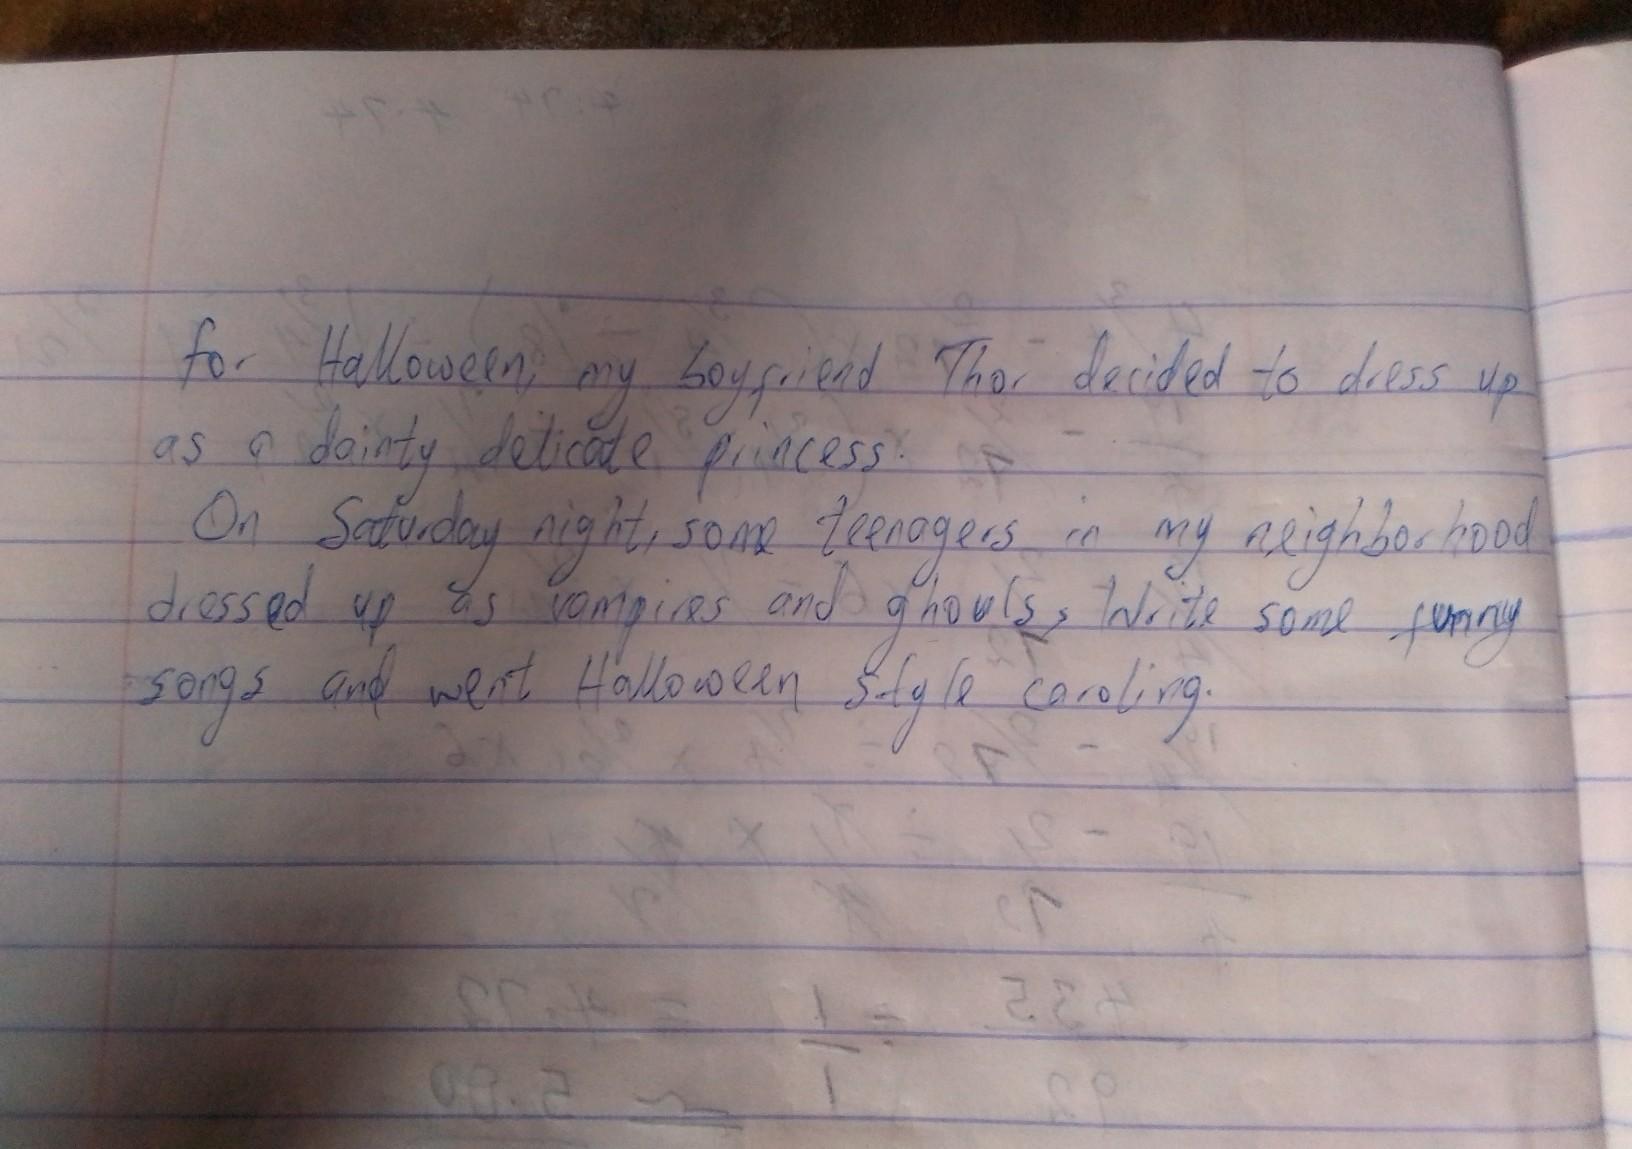 for Halloween, my boyfriend Thor decided to dress up
as a dainty delicate princess.
On Saturday night, some teenagers in my neighborhood
dressed up as vampires and ghouls, Write some funny
songs and went Halloween style caroling.